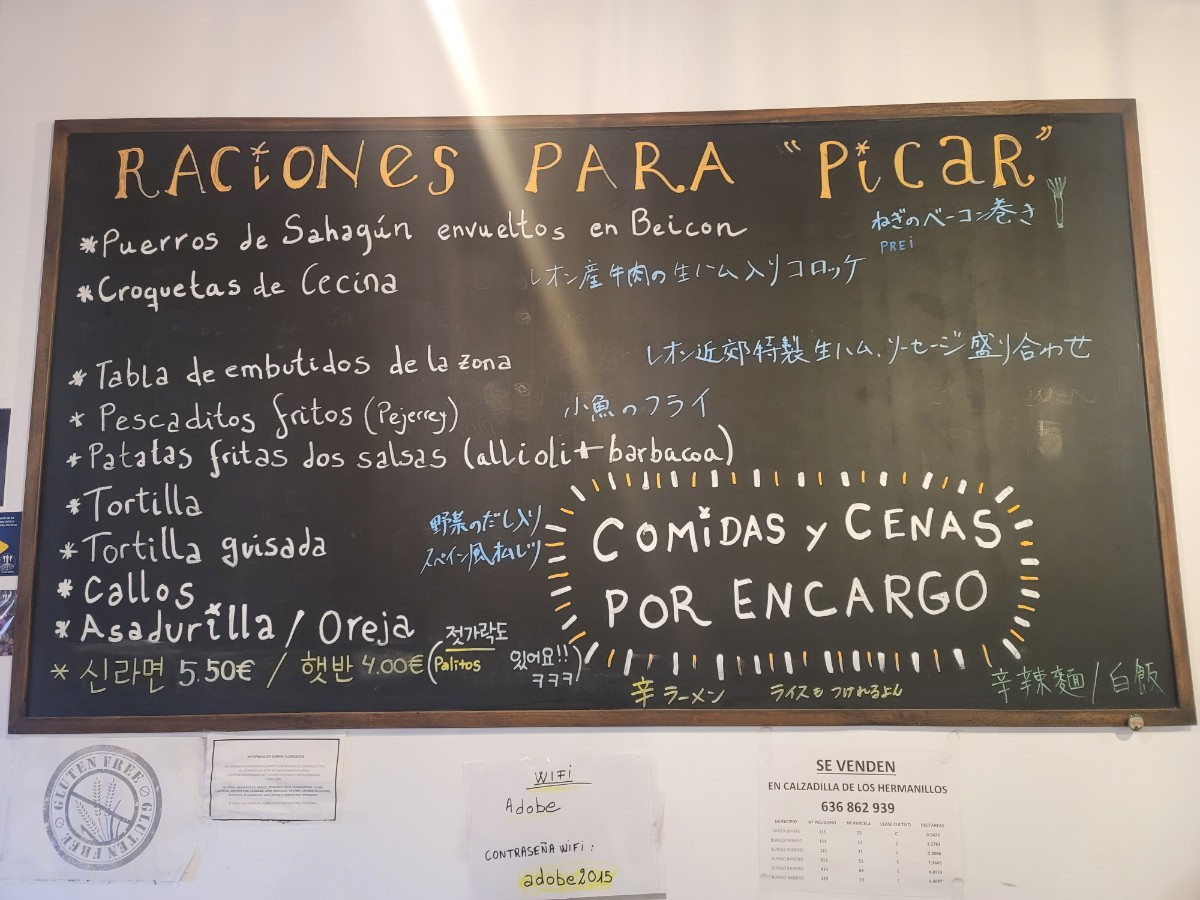 RACiONES PARA "PiCAR"
*Puerros de Sahagún envueltos en Beicon
ねぎのベーコン巻き
PREi
*Croquetas de Cecina
レオン産牛肉の生ハム入りコロッケ
*Tabla de embutidos de la zona
レオン近郊特製生ハム、ソーセージ盛り合わせ
* Pescaditos fritos (Pejerrey)
小魚のフライ
*Patatas fritas dos salsas (allioli+barbacoa)
*Tortilla
*Tortilla guisada
野菜のだし入り
スペイン風オムレツ
*Callos
*Asadurilla/Oreja
COMiDAS y CENAS
POR ENCARGO
* 신라면 5.50€ / 햇반 4.00€ (젓가락도
Palitos
있어요!!
ㅋㅋㅋ)
辛ラーメン
ライスもつけれるよん
辛辣麵/白飯
GLUTEN FREE
GLUTEN FREE
WIFI
Adobe
CONTRASEÑA WIFI:
adobe2015
SE VENDEN
EN CALZADILLA DE LOS HERMANILLOS
636 862 939